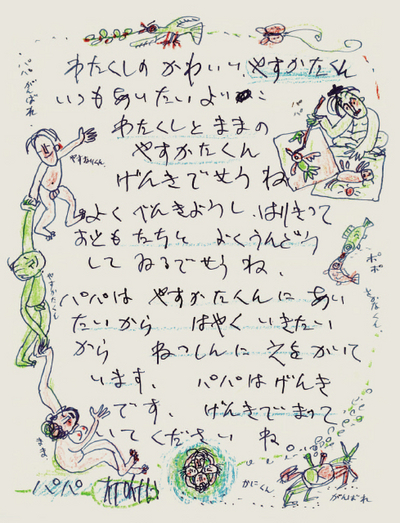 わたくしの かわいい やすかたくん
いつもあいたいよ
わたくしとままの
やすかたくん
げんきでせうね
よくべんきようし はりきって
おともたちと よくうんどう
してゐるでせうね、
パパは やすかたくんに あい
たいから はやくいきたい
から ねっしんに えをかいて
います、 パパはげんき
です、 げんきでまって
いてください ね
パパ
パパがんばれ
やすかたくん
やすかたくん
まま
パパ
ポポ
さかなくん
かにくん
がんばれ